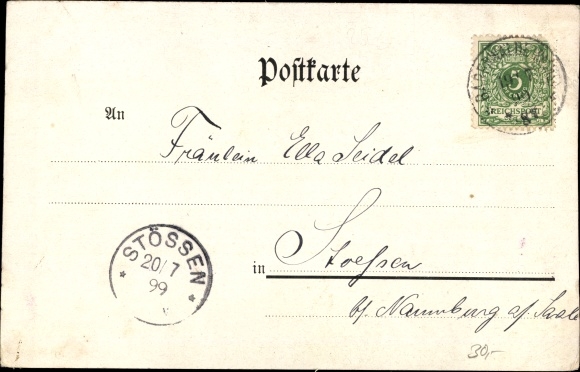 Postkarte
5
REICHSPOST
An
Fräulein Ella Seidel
STÖSSEN
20/7
99
in Stoessen
b/. Naumburg a/. Saale
30,-